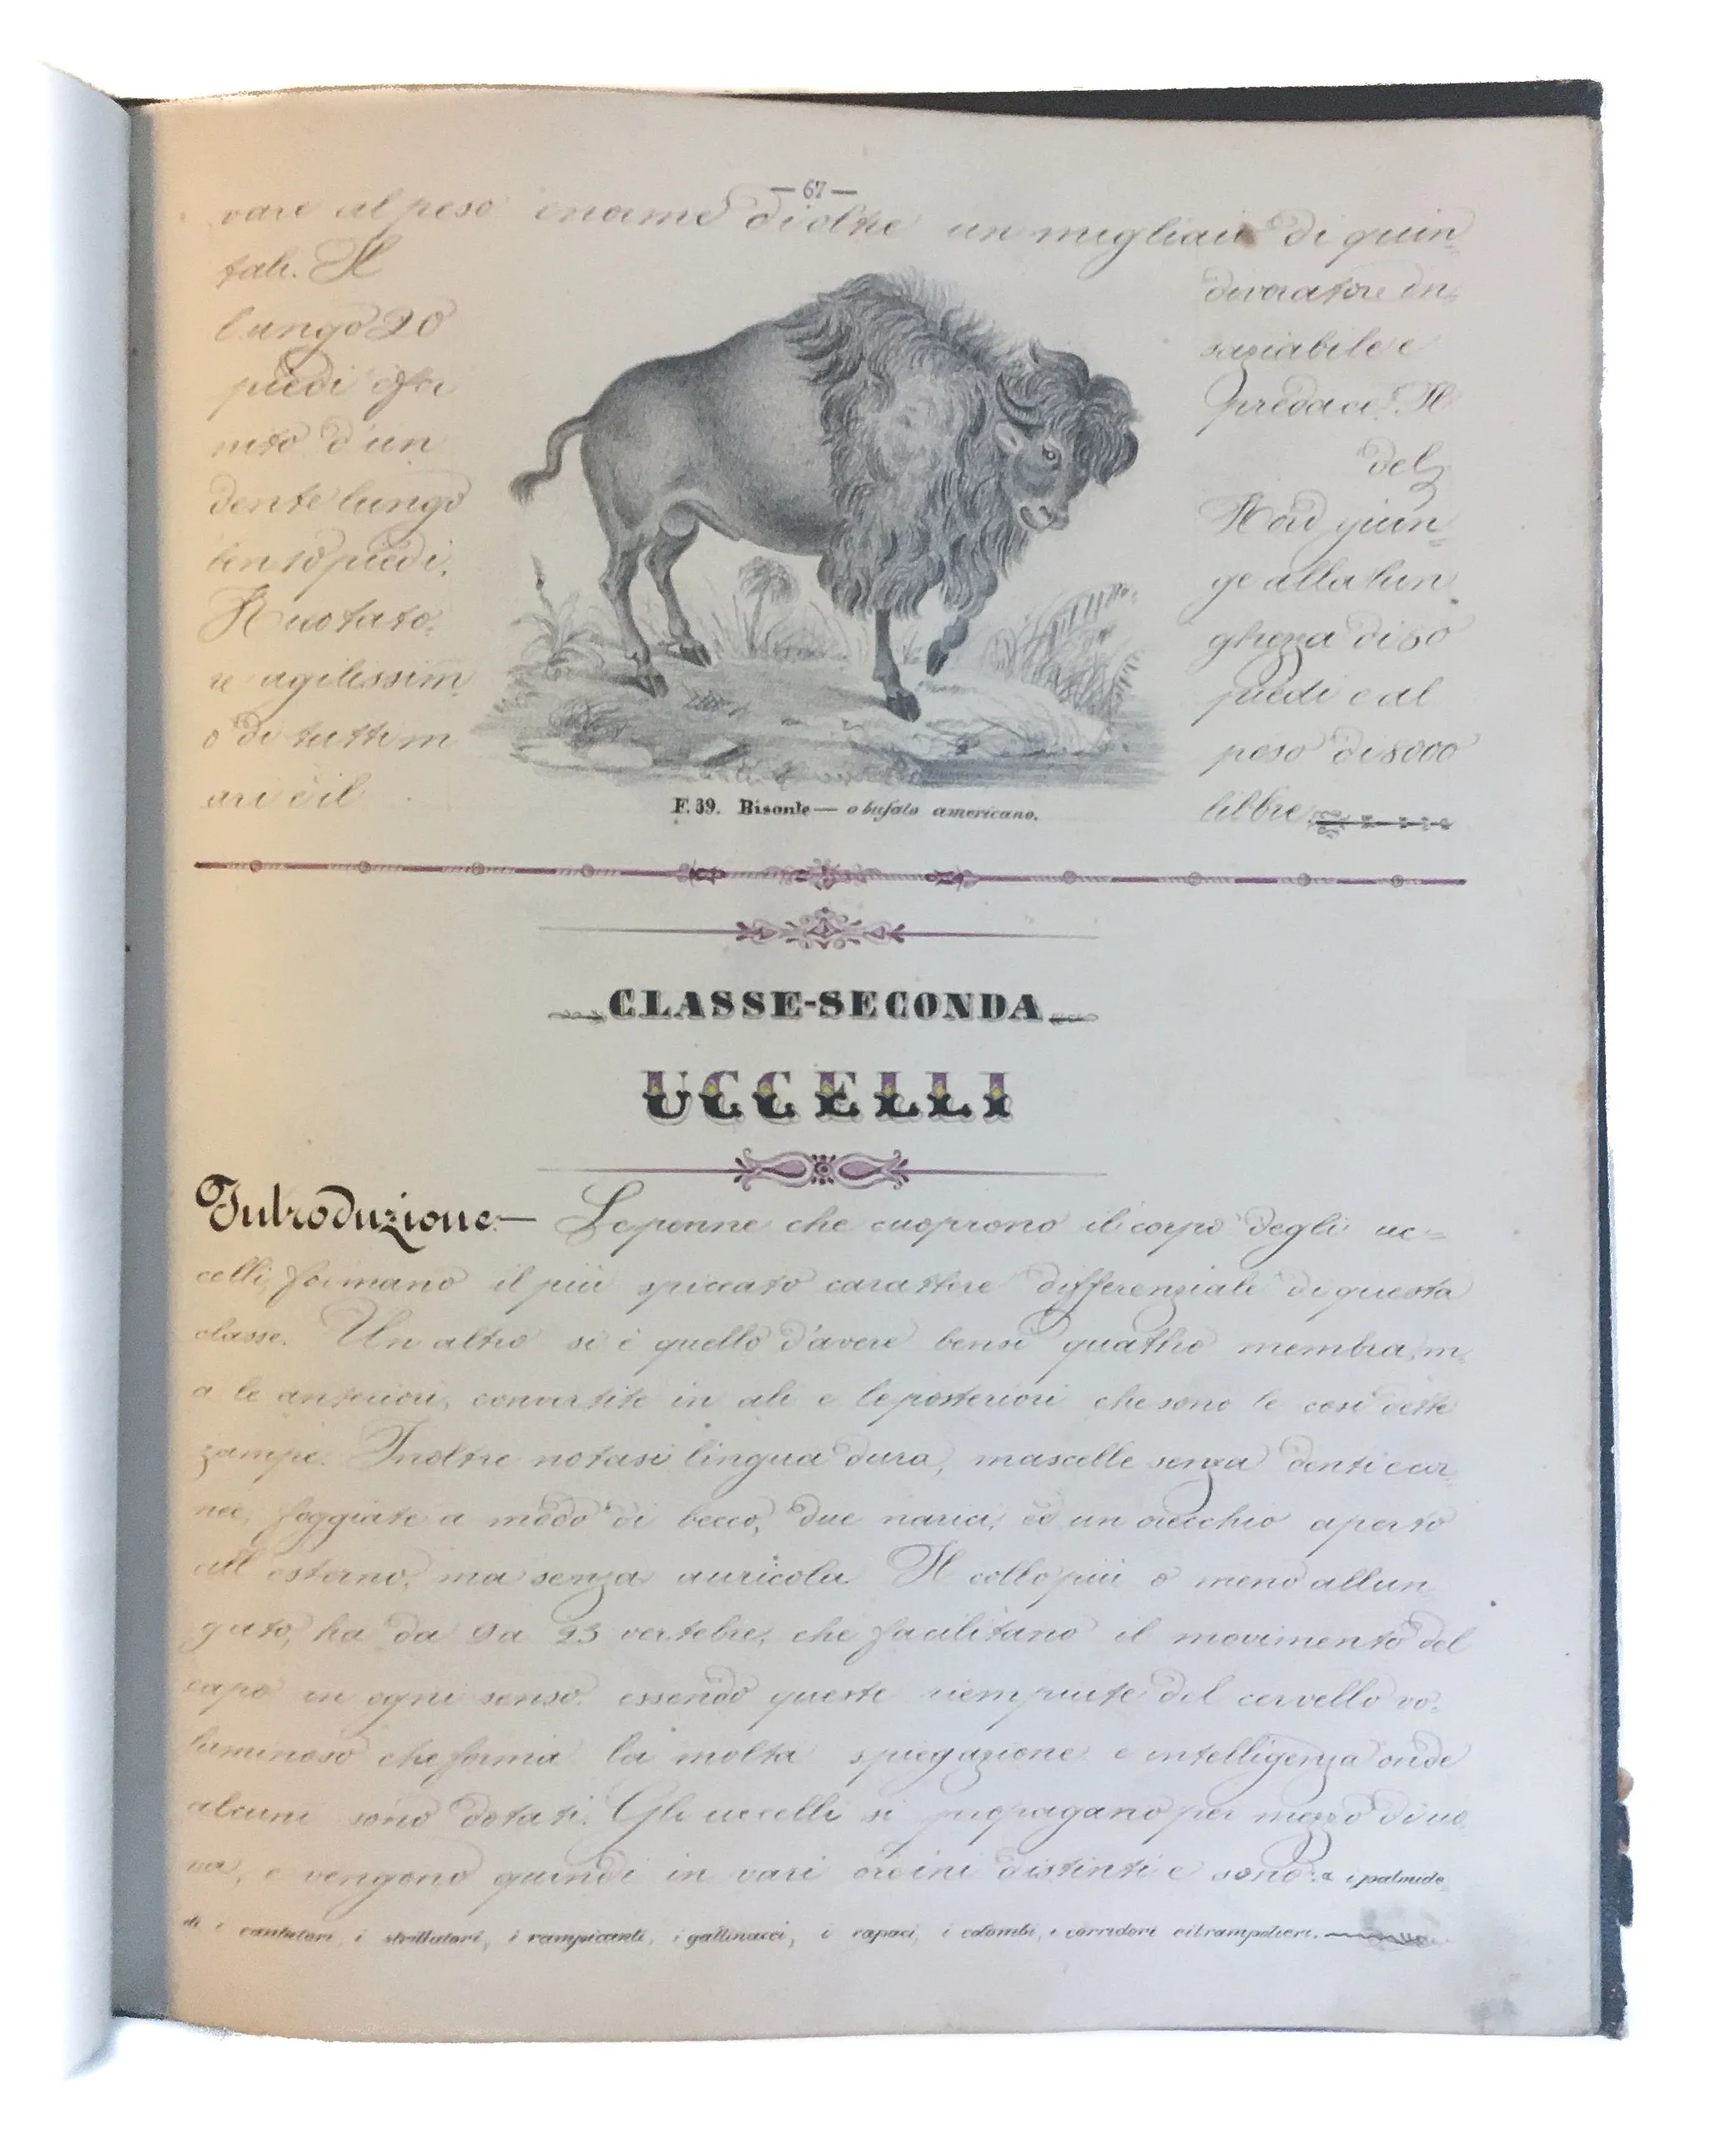 — 67 —
vare al peso enorme di oltre un migliaio di quin=
tali. Il
lungo 20
piedi è for
nito d'un
dente lungo
ben 10 piedi.
Nuotato=
re agilissim
o di tutti m
ari è il
divoratore in=
saziabile e
predace. Il
del
Nord giun=
ge alla lun
ghezza di 80
piedi e al
peso di 8000
libbre.
F. 39. Bisonte — o bufalo americano.
CLASSE-SECONDA
UCCELLI
Introduzione.— Le penne che cuoprono il corpo degli uc=
celli, formano il più spiccato carattere differenziale di questa
classe. Un altro si è quello d'avere bensi quattro membra, m=
a le anteriori, convertite in ali e le posteriori che sono le cosi dette
zampe. Inoltre notasi lingua dura, mascelle senza denti cor
nee, foggiate a modo di becco, due narici, ed un orecchio aperto
all'esterno, ma senza auricola. Il collo più o meno allun
gato, ha da 9 a 23 vertebre, che facilitano il movimento del
capo in ogni senso. essendo queste riempiute del cervello vo=
luminoso che forma la molta spiegazione e intelligenza onde
alcuni sono dotati. Gli uccelli si propagano per mezzo di uo
va, e vengono quindi in vari ordini distinti e sono: i palmide
di i cantatori, i strillatori, i rampicanti, i gallinacci, i rapaci, i colombi, i corridori e i trampolieri.